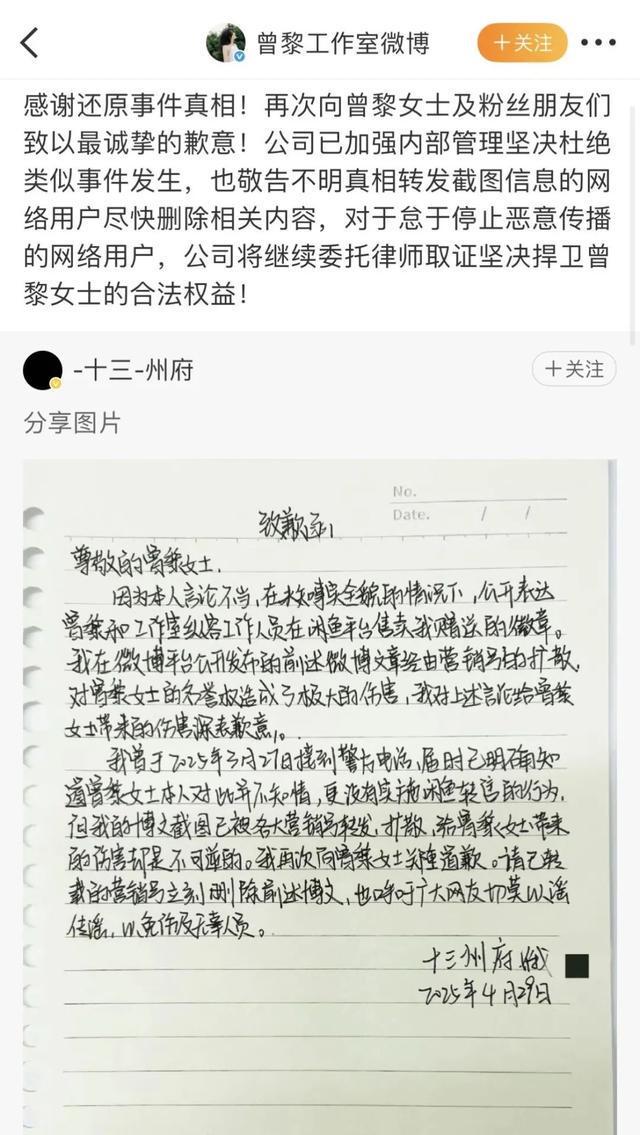 曾黎工作室微博
+关注
感谢还原事件真相！再次向曾黎女士及粉丝朋友们
致以最诚挚的歉意！公司已加强内部管理坚决杜绝
类似事件发生，也敬告不明真相转发截图信息的网
络用户尽快删除相关内容，对于怠于停止恶意传播
的网络用户，公司将继续委托律师取证坚决捍卫曾
黎女士的合法权益！
-十三-州府
+关注
分享图片
No.
Date. / /
致歉函
尊敬的曾黎女士，
因为本人言论不当，在未知事实全貌的情况下，公开表达
曾黎和工作室纵容工作人员在闲鱼平台售卖我赠送的徽章。
我在微博平台公开发布的前述微博文章经由营销号的扩散，
对曾黎女士的名誉权造成了极大的伤害，我对上述言论给曾黎
女士带来的伤害深表歉意。
我曾于2025年3月27日接到警方电话，届时已明确知
道曾黎女士本人对此并不知情，更没有实施闲鱼转售的行为，
但我的博文截图已被各大营销号转发，扩散，给曾黎女士带来
的伤害却是不可逆的。我再次向曾黎女士郑重道歉。请已转
载的营销号立刻删除前述博文，也呼吁广大网友切莫以谣
传谣，以免伤及无辜人员。
十三州府
2025年4月29日